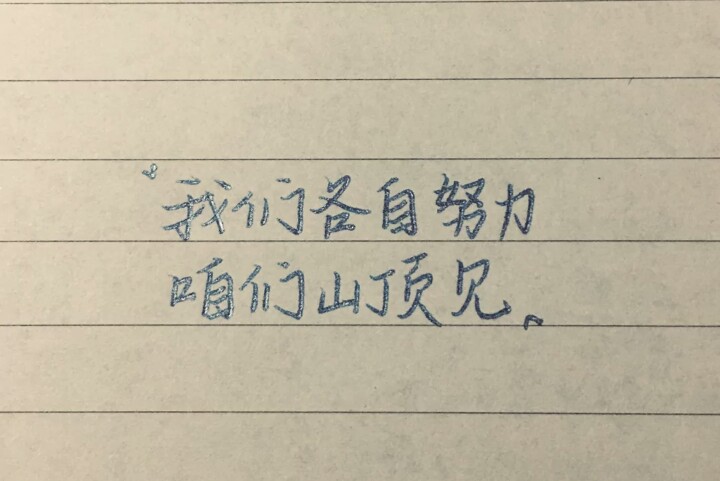 “我们各自努力
咱们山顶见„